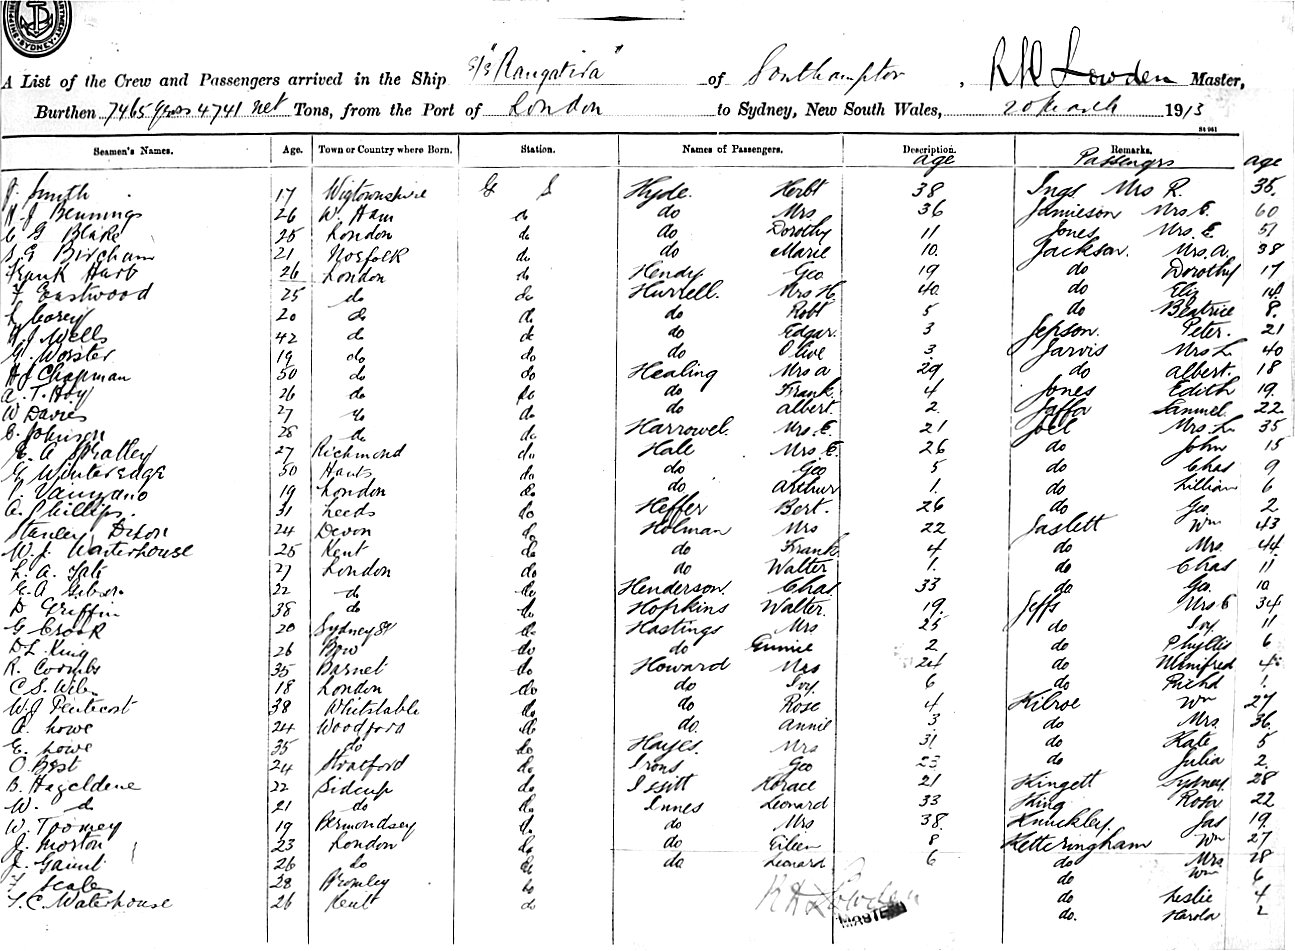 SYDNEY
S/S "Rangatira"
A List of the Crew and Passengers arrived in the Ship of Southampton, R H Lowden Master,
Burthen 7465 gross 4741 net Tons, from the Port of London to Sydney, New South Wales, 20 March 1913
St 961
Seamen's Names. Age. Town or Country where Born. Station. Names of Passengers. Description. Remarks.
age Passengrs age
J. Smith 17 Wigtownshire G S Hyde. Herbt 38 Ings Mrs R. 35.
H. J Bennings 26 W. Ham do do Mrs 36 Jamieson Mrs E. 60
C G Blake 25 London do do Dorothy 11 Jones Mrs. E. 51
S. G Bircham 21 Norfolk do do Marie 10. Jackson. Mrs. A. 38
Frank Harb 26 London do Hendy Geo 19 do Dorothy 17
F Eastwood 25 do do Hurrell. Mrs H. 40. do Eliz 14
L Carey 20 do do do Robt 5 do Beatrice 8.
H J Wells 42 do do do Edgar. 3 Jepson. Peter. 21
G. Worster 19 do do do Olive 3. Jarvis Mrs L 40
H J Chapman 50 do do Healing Mrs A 29 do Albert. 18
A. T. Hoy 26 do do do Frank. 4 Jones Edith 19.
W Davies 27 do do do Albert. 2. Jaffa Samuel 22.
C. Johnson 28 do do Harrowel. Mrs. E. 21 Joel Mrs. L. 35
E. A Spratley 27 Richmond do Hale Mrs. E. 26 do John 15
G Winteredge 50 Hants do do Geo 5 do Chas 9
19 London do do Arthur 1. do Lillian 6
A. Phillips. 31 Leeds do Heffer Bert. 26 do Geo. 2
Stanley Dixon 24 Devon do Holman Mrs 22 Jaslett Wm 43
W. J. Waterhouse 25 Kent do do Frank 4 do Mrs. 44.
L. A. Tate 27 London do do Walter 1. do Chas 11
E. A Gibson 22 do do Henderson. Chas 33 do Geo. 10
D Griffin 38 do do Hopkins Walter. 19. Jeffs Mrs. E 34
G Crook 20 Sydney do Hastings Mrs 25 do Ivy 11
D L. King 26 Bow do do 2 do Phyllis 6
R. Coombs 35 Barnet do Howard Mrs 24 do Winifred 4
C. S. 18 London do do Ivy. 6 do Richd 1.
W. J Pentecost 38 Whitstable do do Rose 4 Kilroe Wm 27
A. Lowe 24 Woodford do do. Annie 3 do Mrs 36.
E. Lowe 35 do do Hayes. Mrs 31 do Kate 5
O Best 24 Stratford do Irons Geo 23 do Julia 2.
B. Hazeldene 22 Sidcup do Horace 21 Kingett Sydney. 28
W. do 21 do do Innes Leonard 33 King Robt 22
W. Toomey 19 Bermondsey do do Mrs 38. Knuckley. Jas 19.
J. Morton 23 London do do Eileen 8 Ketteringham Wm 27
J. Gaunt 26 do do do Leonard 6 do Mrs 28
F Scales 28 Bromley do do Wm 6
T. C. Waterhouse 26 Kent do do Leslie 4
do. Harold 2
R H Lowden
MASTER